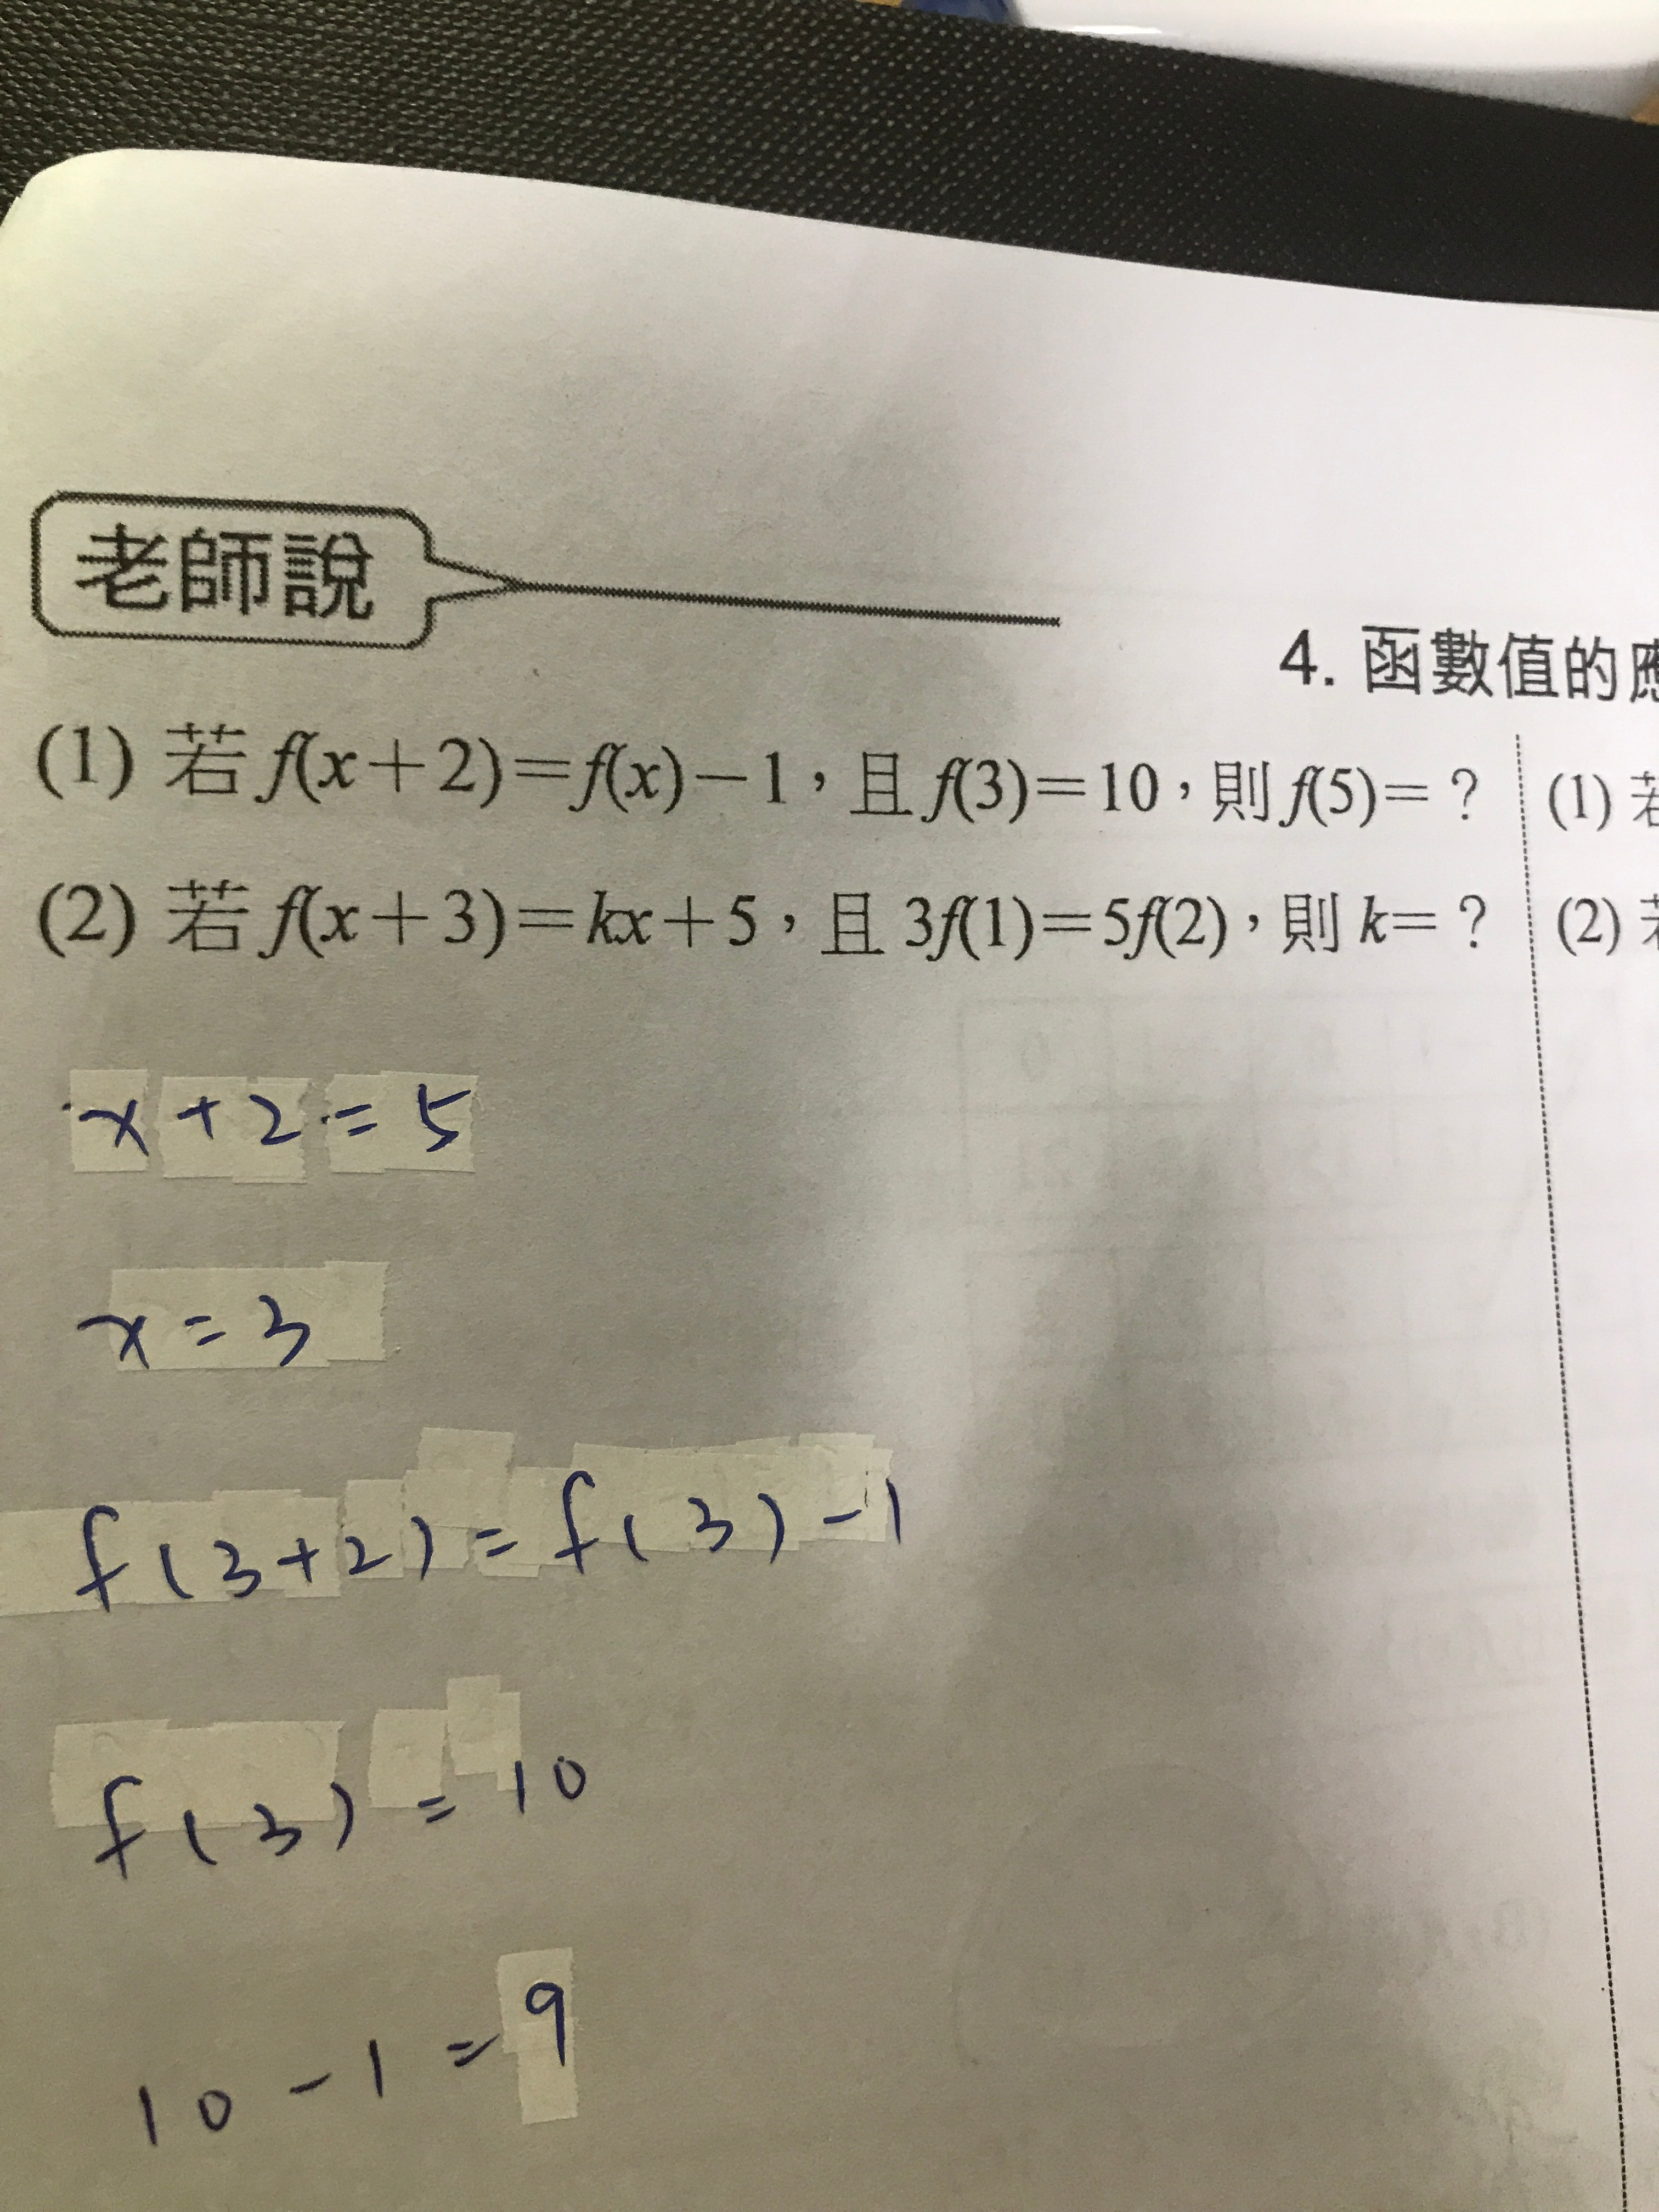 老師說
4. 函數值的
(1) 若 f(x+2)=f(x)-1，且 f(3)=10，則 f(5)=？
(2) 若 f(x+3)=kx+5，且 3f(1)=5f(2)，則 k=？
(1)
(2)
x+2=5
x=3
f(3+2)=f(3)-1
f(3)=10
10-1=9